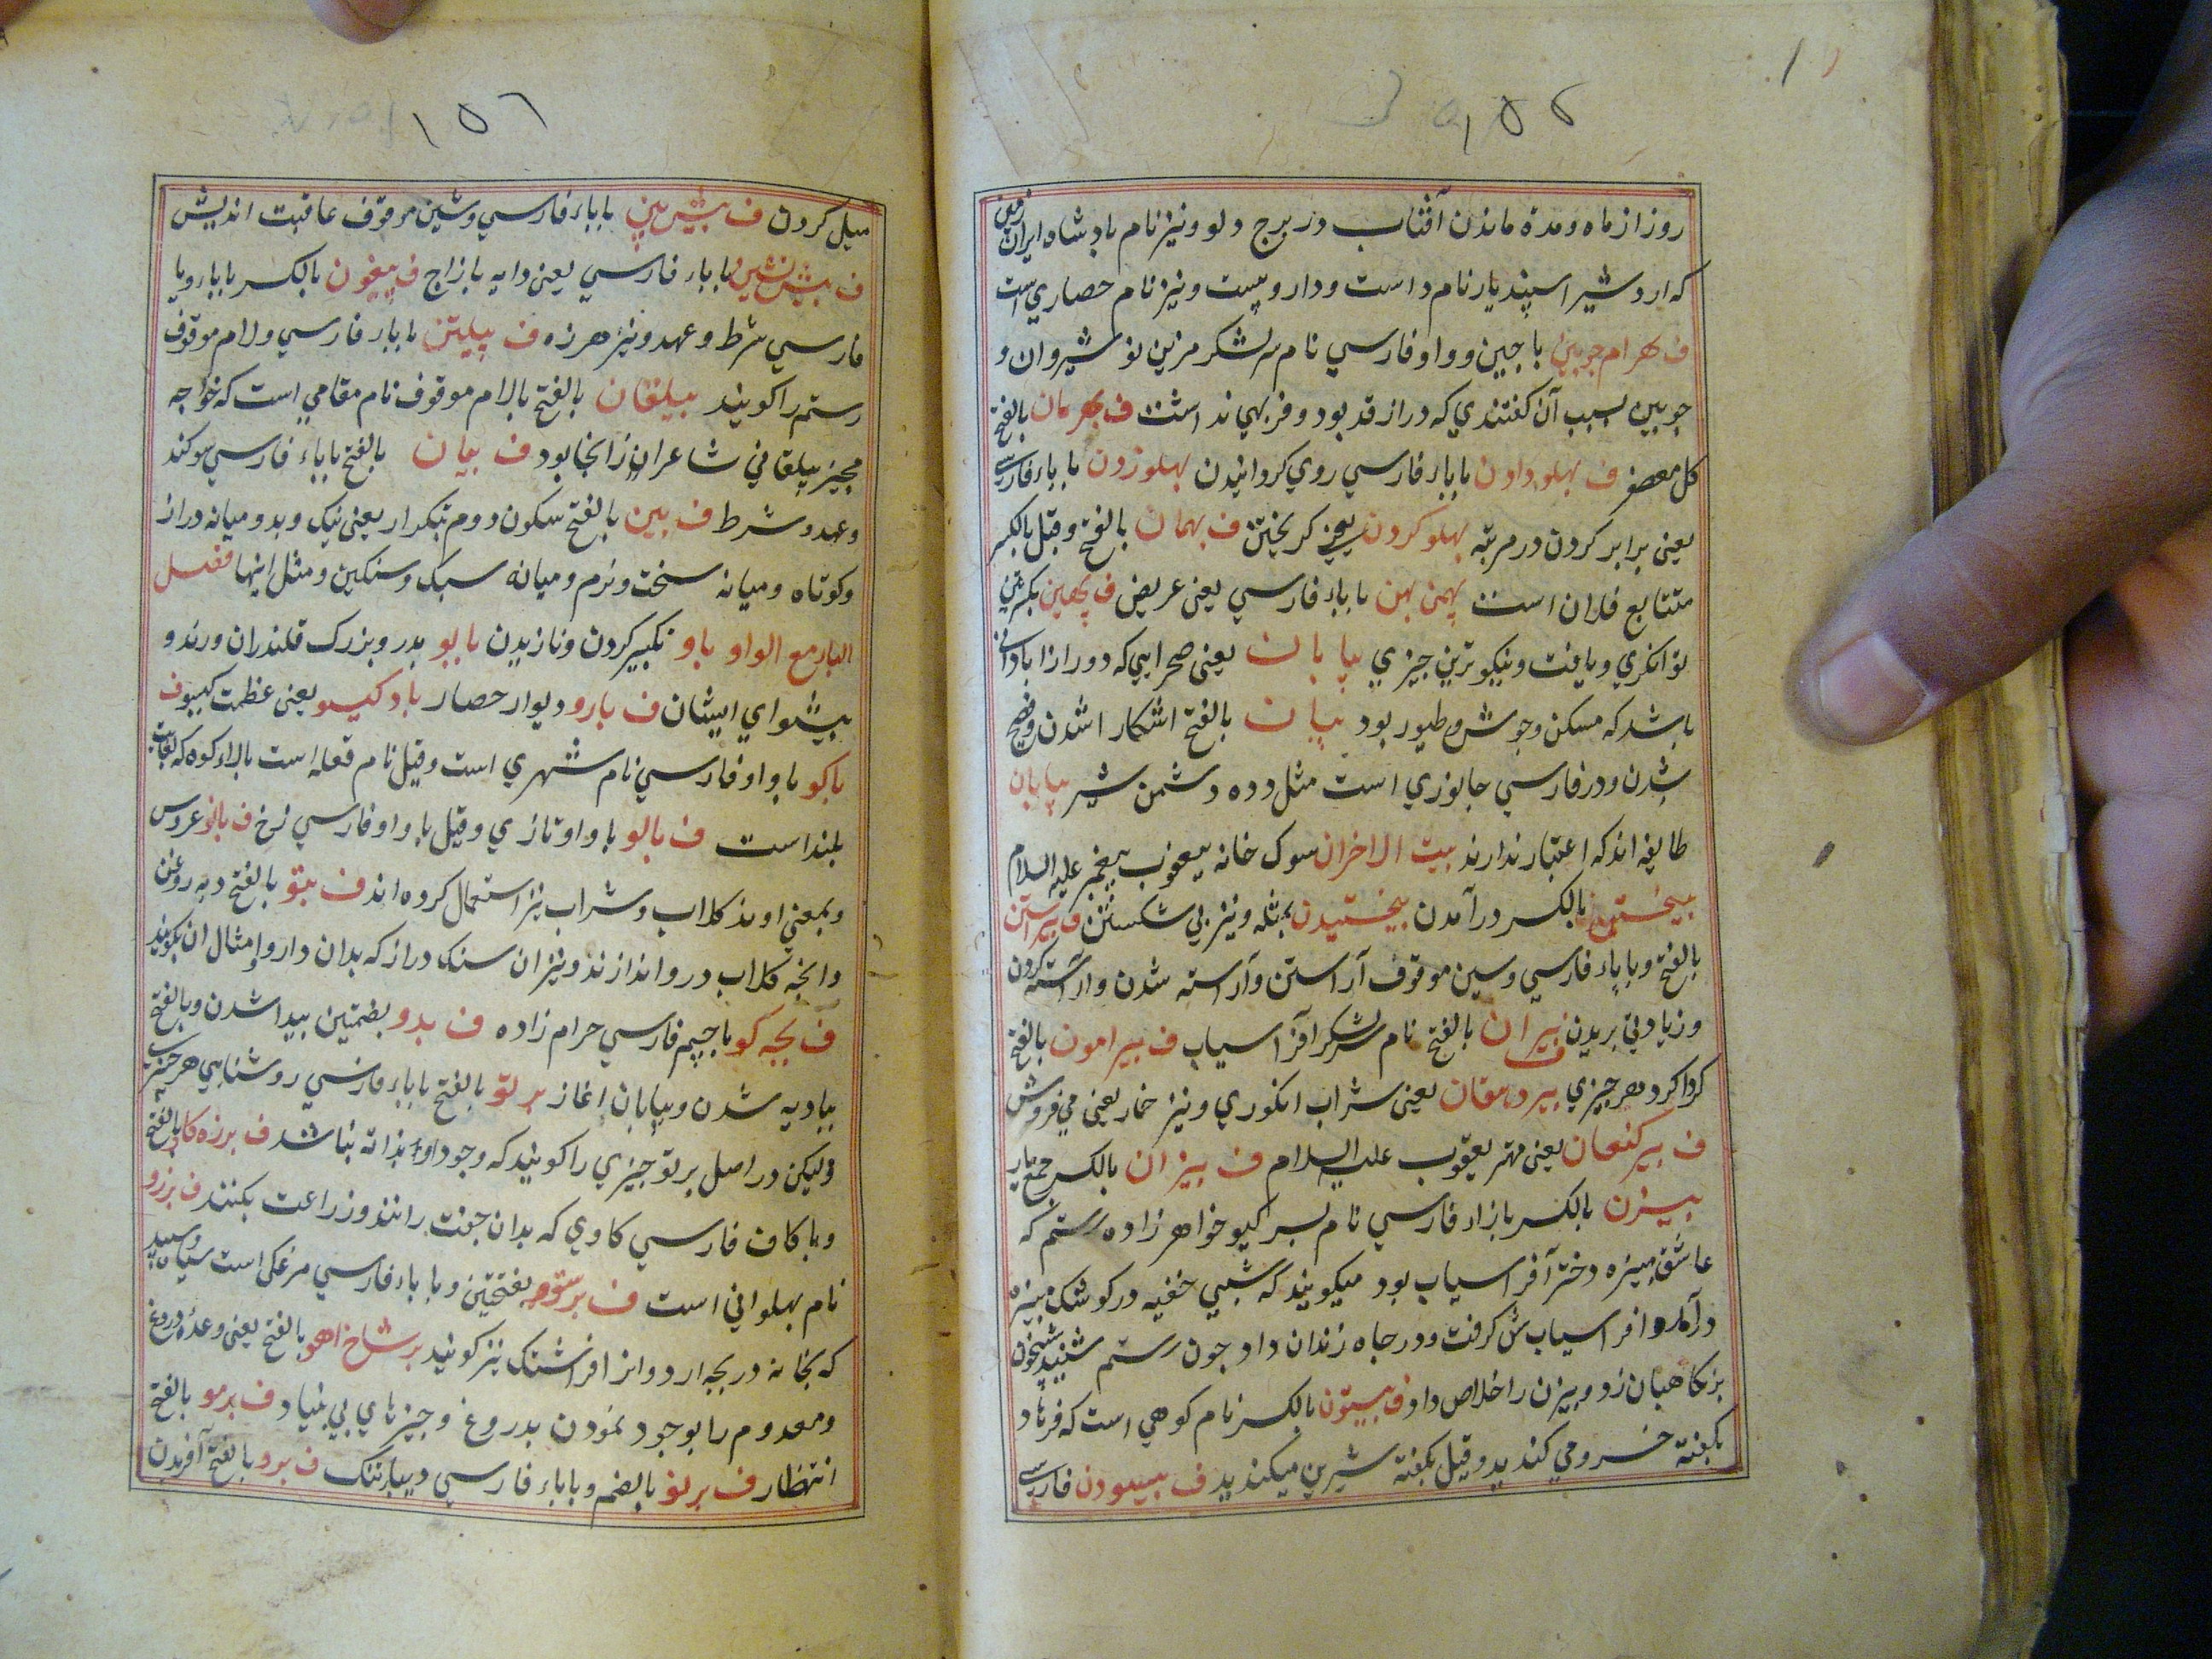 ۱۵۵
روز از ماه و مدة ماندن آفتاب در برج دلو و نیز نام بادشاه ایران زمین
که اردشیر اسپندیار نام داست و داروییست و نیز نام حصاري است
ف بهرام جوبین با جین و واو فارسي نام سرلشکر مرزبن نوشیروان و
جوبین بسبب آن کفتندي که دراز قد بود و فربهي نداشت ف بهرمان بالفتح
کل معصفر ف بهلو دادن با باء فارسي روي کردانیدن بهلو زدن با باء فارسي
یعنی برابر کردن در مرتبه بهلو کردن یعنی کریختن ف بهمان بالفتح و قیل بالکسر
متتابع فلان است بهمن بهن با باء فارسي یعنی عریض ف بهین بکسرتین
توانکري و یافت و نیکوترین جیزي بیابان یعنی صحرایي که دور از ابادانی
باشد که مسکن وحوش و طیور بود بیان بالفتح اشکارا شدن و فصیح
شدن و در فارسي جانوري است مثل دده دشمن شیر بیابان
طایفه اند که اعتبار ندارند بیت الاخران سوک خانه یعقوب بیغمبر علیه السلام
بیختن بالکسر در آمدن بیختیدن بمثله و نیز بي شکستن ف بیراستن
بالفتح و با باء فارسي و سین موقوف آراستن و آراسته شدن و آراسته کردن
و زیادتي بریدن ف بیران بالفتح نام سرلشکر افراسیاب ف بیرامون بالفتح
کردا کرد هر جیزي بیر دهقان یعنی شراب انکوري و نیز خمار یعنی مي فروش
ف بیر کنعان یعنی مهتر یعقوب علیه السلام ف بیزان بالکسر جمع یار
بیزن بالکسر با زاء فارسي نام بسر کیو خواهرزاده رستم که
عاشق منیزه دختر آفراسیاب بود میکویند که شبي خفیه در کوشک منیزه
در آمد و افراسیابش کرفت و در جاه زندان داد جون رستم شنید شبخون
بر نکاهبان زد و بیزن را خلاص داد ف بیستون بالکسر نام کوهي است که فرهاد
بکفتة خسرو مي کندید و قیل بکفتة شیرین میکندید ف بیسودن فارسي
۱۵۶
میل کردن ف بیش بین با باء فارسي و شین موقوف عاقبت اندیش
ف بیش نشین با باء فارسي یعنی دایه با زاج ف بیغون بالکسر با باء و یا
فارسي شرط و عهد و نیز هرزه ف بیلتن با باء فارسي و لام موقوف
رستم را کویند بیلقان بالفتح بالام موقوف نام مقامي است که خواجه
مجیر بیلقاني شاعران از انجا بود ف بیان بالفتح با باء فارسي سوکند
و عهد و شرط ف بین بالفتح سکون دوم بتکرار یعنی نیک و بد و میانه دراز
و کوتاه و میانه سخت و نرم و میانه سبک و سنکین و مثل اینها فصل
الباء مع الواو باو تکبیر کردن و نازیدن بابو بدر و بزرک قلندران و رند و
بیشوای ایشان ف بارو دیوار حصار باد کیسو یعنی عظمت کیسو ف
باکو با واو فارسي نام شهري است و قیل نام قعله است بالاء کوه که بغایت
بلند است ف بالو با واو تازي و قیل با واو فارسي زخ ف بانو عروس
و بمعنی اوند کلاب و شراب نیز استعمال کرده اند ف ببتو بالفتح دبه روغن
و انجه کلاب در و اندازند و نیز ان سنک دراز که بدان دارو و امثال ان بکوبند
ف بجه کو با جیم فارسي حرام زاده ف بدو بضمتین بیدا شدن و بالفتح
ببادیه شدن و بیابان اغاز برتو بالفتح با باء فارسي روشنایي هر جیزي
و لیکن در اصل برتو جیزي را کویند که وجود او بذاته نباشد ف برزه کاو بالفتح
و با کاف فارسي کاوي که بدان جفت رانند و زراعت بکنند ف برزو
نام بهلواني است ف برستو بفتحتین و با باء فارسي مرغکي است سیاه و سبید
که بخانه در بجه ارد و انرا فراشتک نیز کویند بر شاخ اهو بالفتح یعنی وعدۀ دروغ
و معدوم را بوجود نمودن بدروغ و جیزهاي بي بنیاد ف برمو بالفتح
انتظار ف برنو بالضم و با باء فارسي دیباء تنک ف برو بالفتح آفریدن